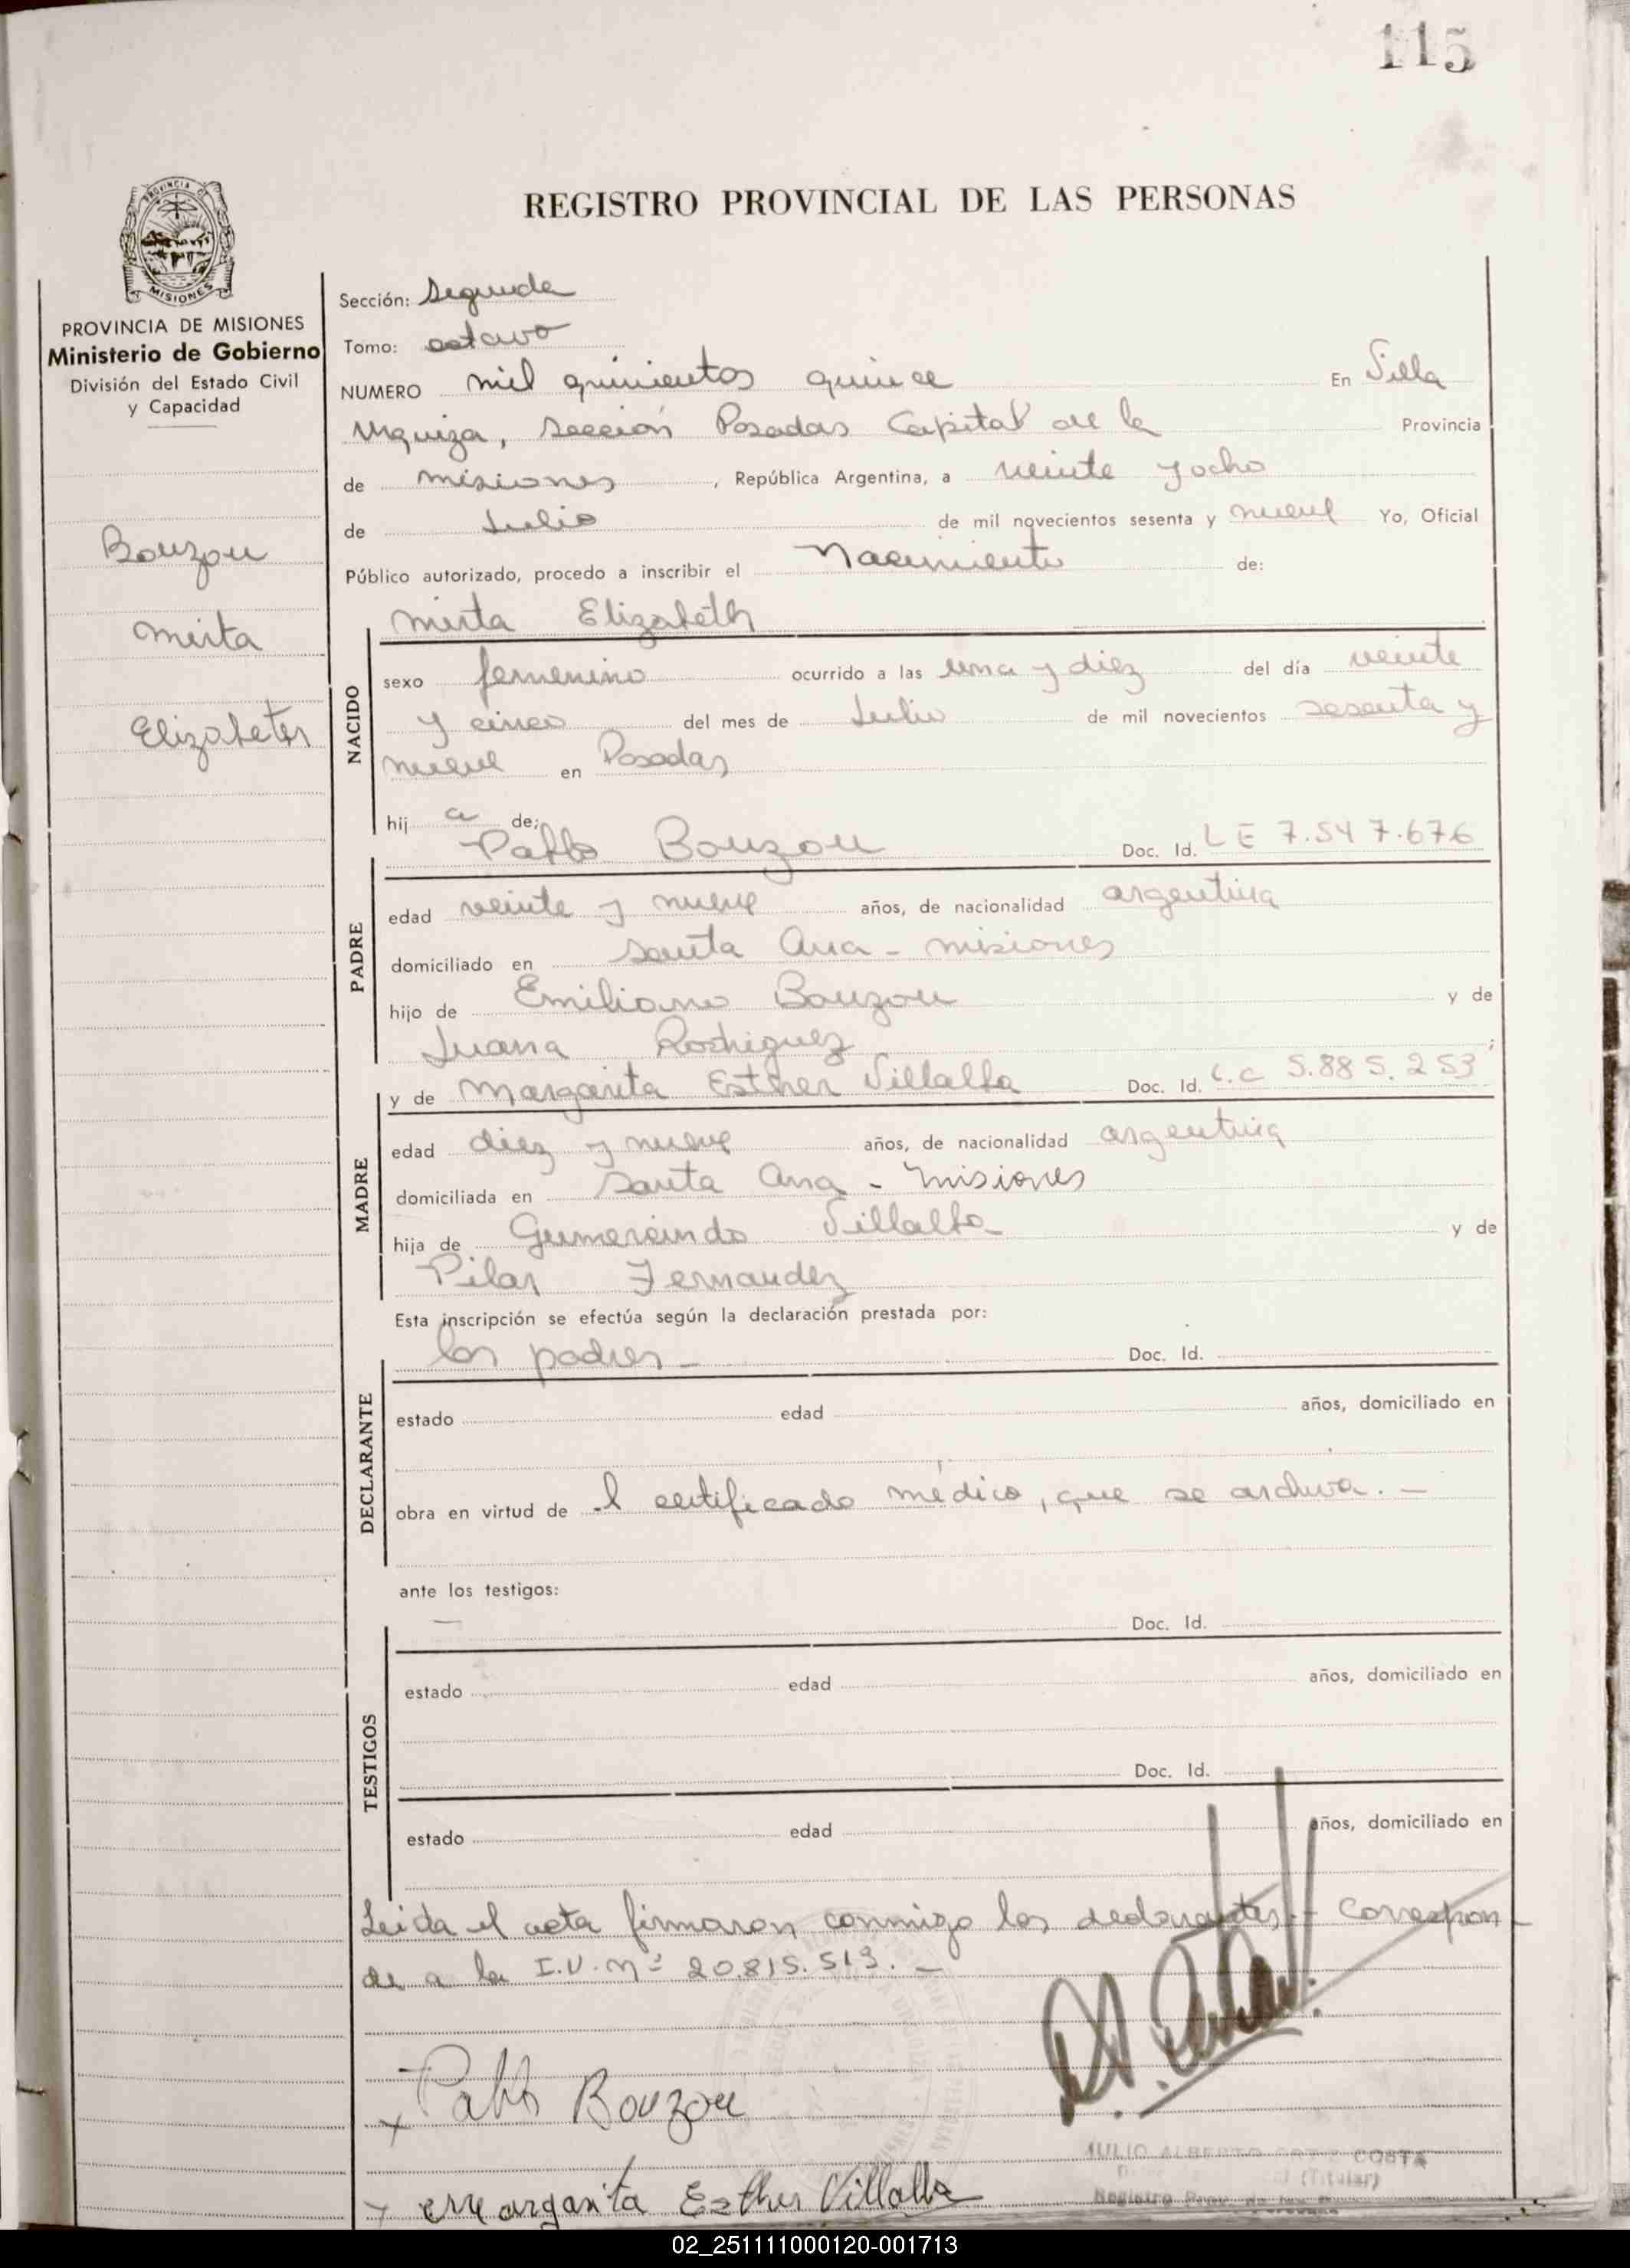 115
REGISTRO PROVINCIAL DE LAS PERSONAS
PROVINCIA DE MISIONES
PROVINCIA DE MISIONES
Ministerio de Gobierno
División del Estado Civil
y Capacidad
Bouzou
Mirta
Elizabeth
Sección: Segunda
Tomo: octavo
NUMERO mil quinientos quince En Villa
Urquiza, Sección Posadas Capital de la Provincia
de Misiones, República Argentina, a veinte y ocho
de Julio de mil novecientos sesenta y nueve Yo, Oficial
Público autorizado, procedo a inscribir el Nacimiento de:
Mirta Elizabeth
NACIDO
sexo femenino ocurrido a las una y diez del día veinte
y cinco del mes de Julio de mil novecientos sesenta y
nueve en Posadas
hij a de:
Pablo Bouzou Doc. Id. LE 7.547.676
PADRE
edad veinte y nueve años, de nacionalidad argentina
domiciliado en Santa Ana - Misiones
hijo de Emiliano Bouzou y de
Juana Rodriguez;
y de Margarita Esther Villalba Doc. Id. L.C 5.885.253
MADRE
edad diez y nueve años, de nacionalidad argentina
domiciliada en Santa Ana - Misiones
hija de Gumercindo Villalba y de
Pilar Fernandez
Esta inscripción se efectúa según la declaración prestada por:
los padres - Doc. Id.
DECLARANTE
estado edad años, domiciliado en
obra en virtud de -l certificado médico, que se archiva. -
ante los testigos:
— Doc. Id.
TESTIGOS
estado edad años, domiciliado en
Doc. Id.
estado edad años, domiciliado en
Leida el acta firmaron conmigo los declarantes.- Correspon-
de a la I.U. Nº 20.815.513. -
x Pablo Bouzou
x Margarita Esther Villalba
JULIO ALBERTO COSTA
(Titular)
Registro
02_251111000120-001713